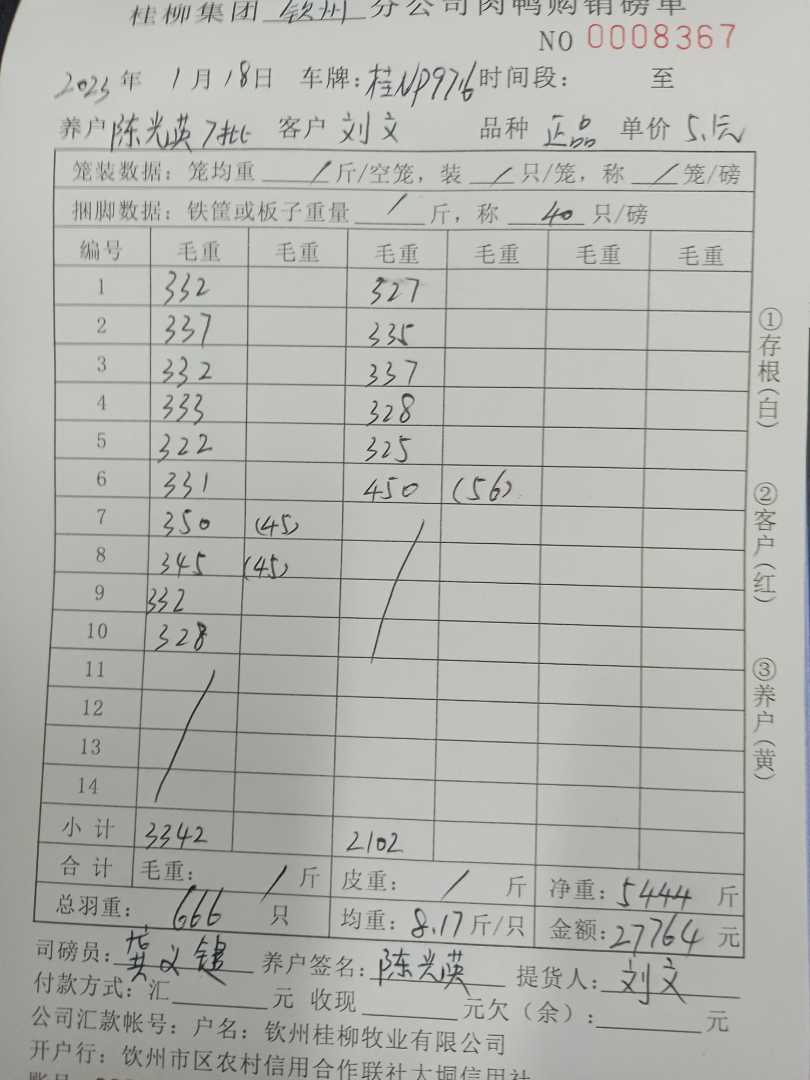 桂柳集团 钦州 分公司肉鸭购销磅单
NO 0008367
2023年 1月18日 车牌:桂NP9716 时间段: 至
养户 陈光英 7批 客户 刘文 品种 正品 单价 5.1元
笼装数据:笼均重 / 斤/空笼,装 / 只/笼,称 / 笼/磅
捆脚数据:铁筐或板子重量 / 斤,称 40 只/磅
编号 毛重 毛重 毛重 毛重 毛重 毛重
1 332 327
2 337 335
3 332 337
4 333 328
5 322 325
6 331 450 (56)
7 350 (45)
8 345 (45)
9 332
10 328
11
12
13
14
小计 3342 2102
合计 毛重: / 斤 皮重: / 斤 净重:5444 斤
总羽重: 666 只 均重:8.17斤/只 金额:27764元
司磅员:黄义 养户签名:陈光英 提货人:刘文
付款方式:汇 元 收现 元欠(余): 元
公司汇款帐号:户名:钦州桂柳牧业有限公司
开户行:钦州市区农村信用合作联社大垌信用社
①存根(白)
②客户(红)
③养户(黄)